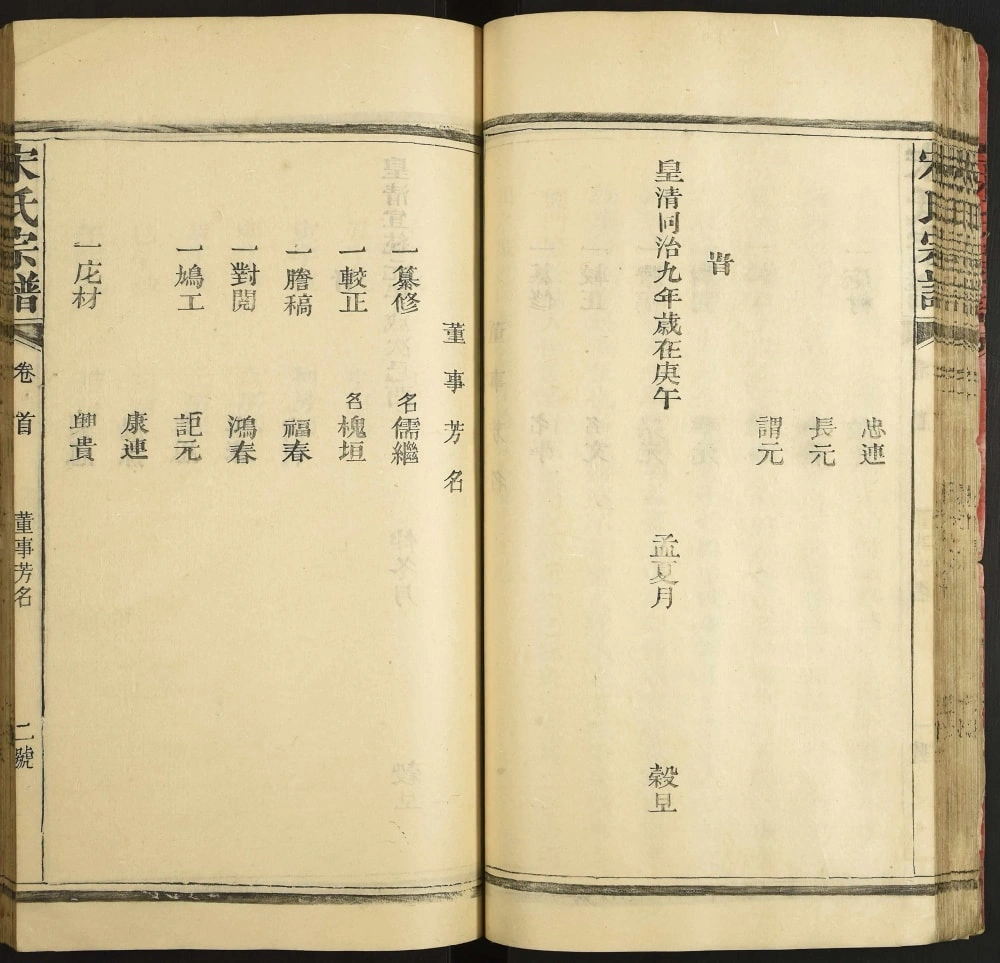 忠連
長元
謂元
皇清同治九年歲在庚午 孟夏月 穀旦
董事芳名
一纂修 名儒繼
一較正 名槐垣
一謄稿 福春
一對閱 鴻春
一鳩工 詎元
康連
一庀材 興貴
宋氏宗譜 卷首 董事芳名 二號